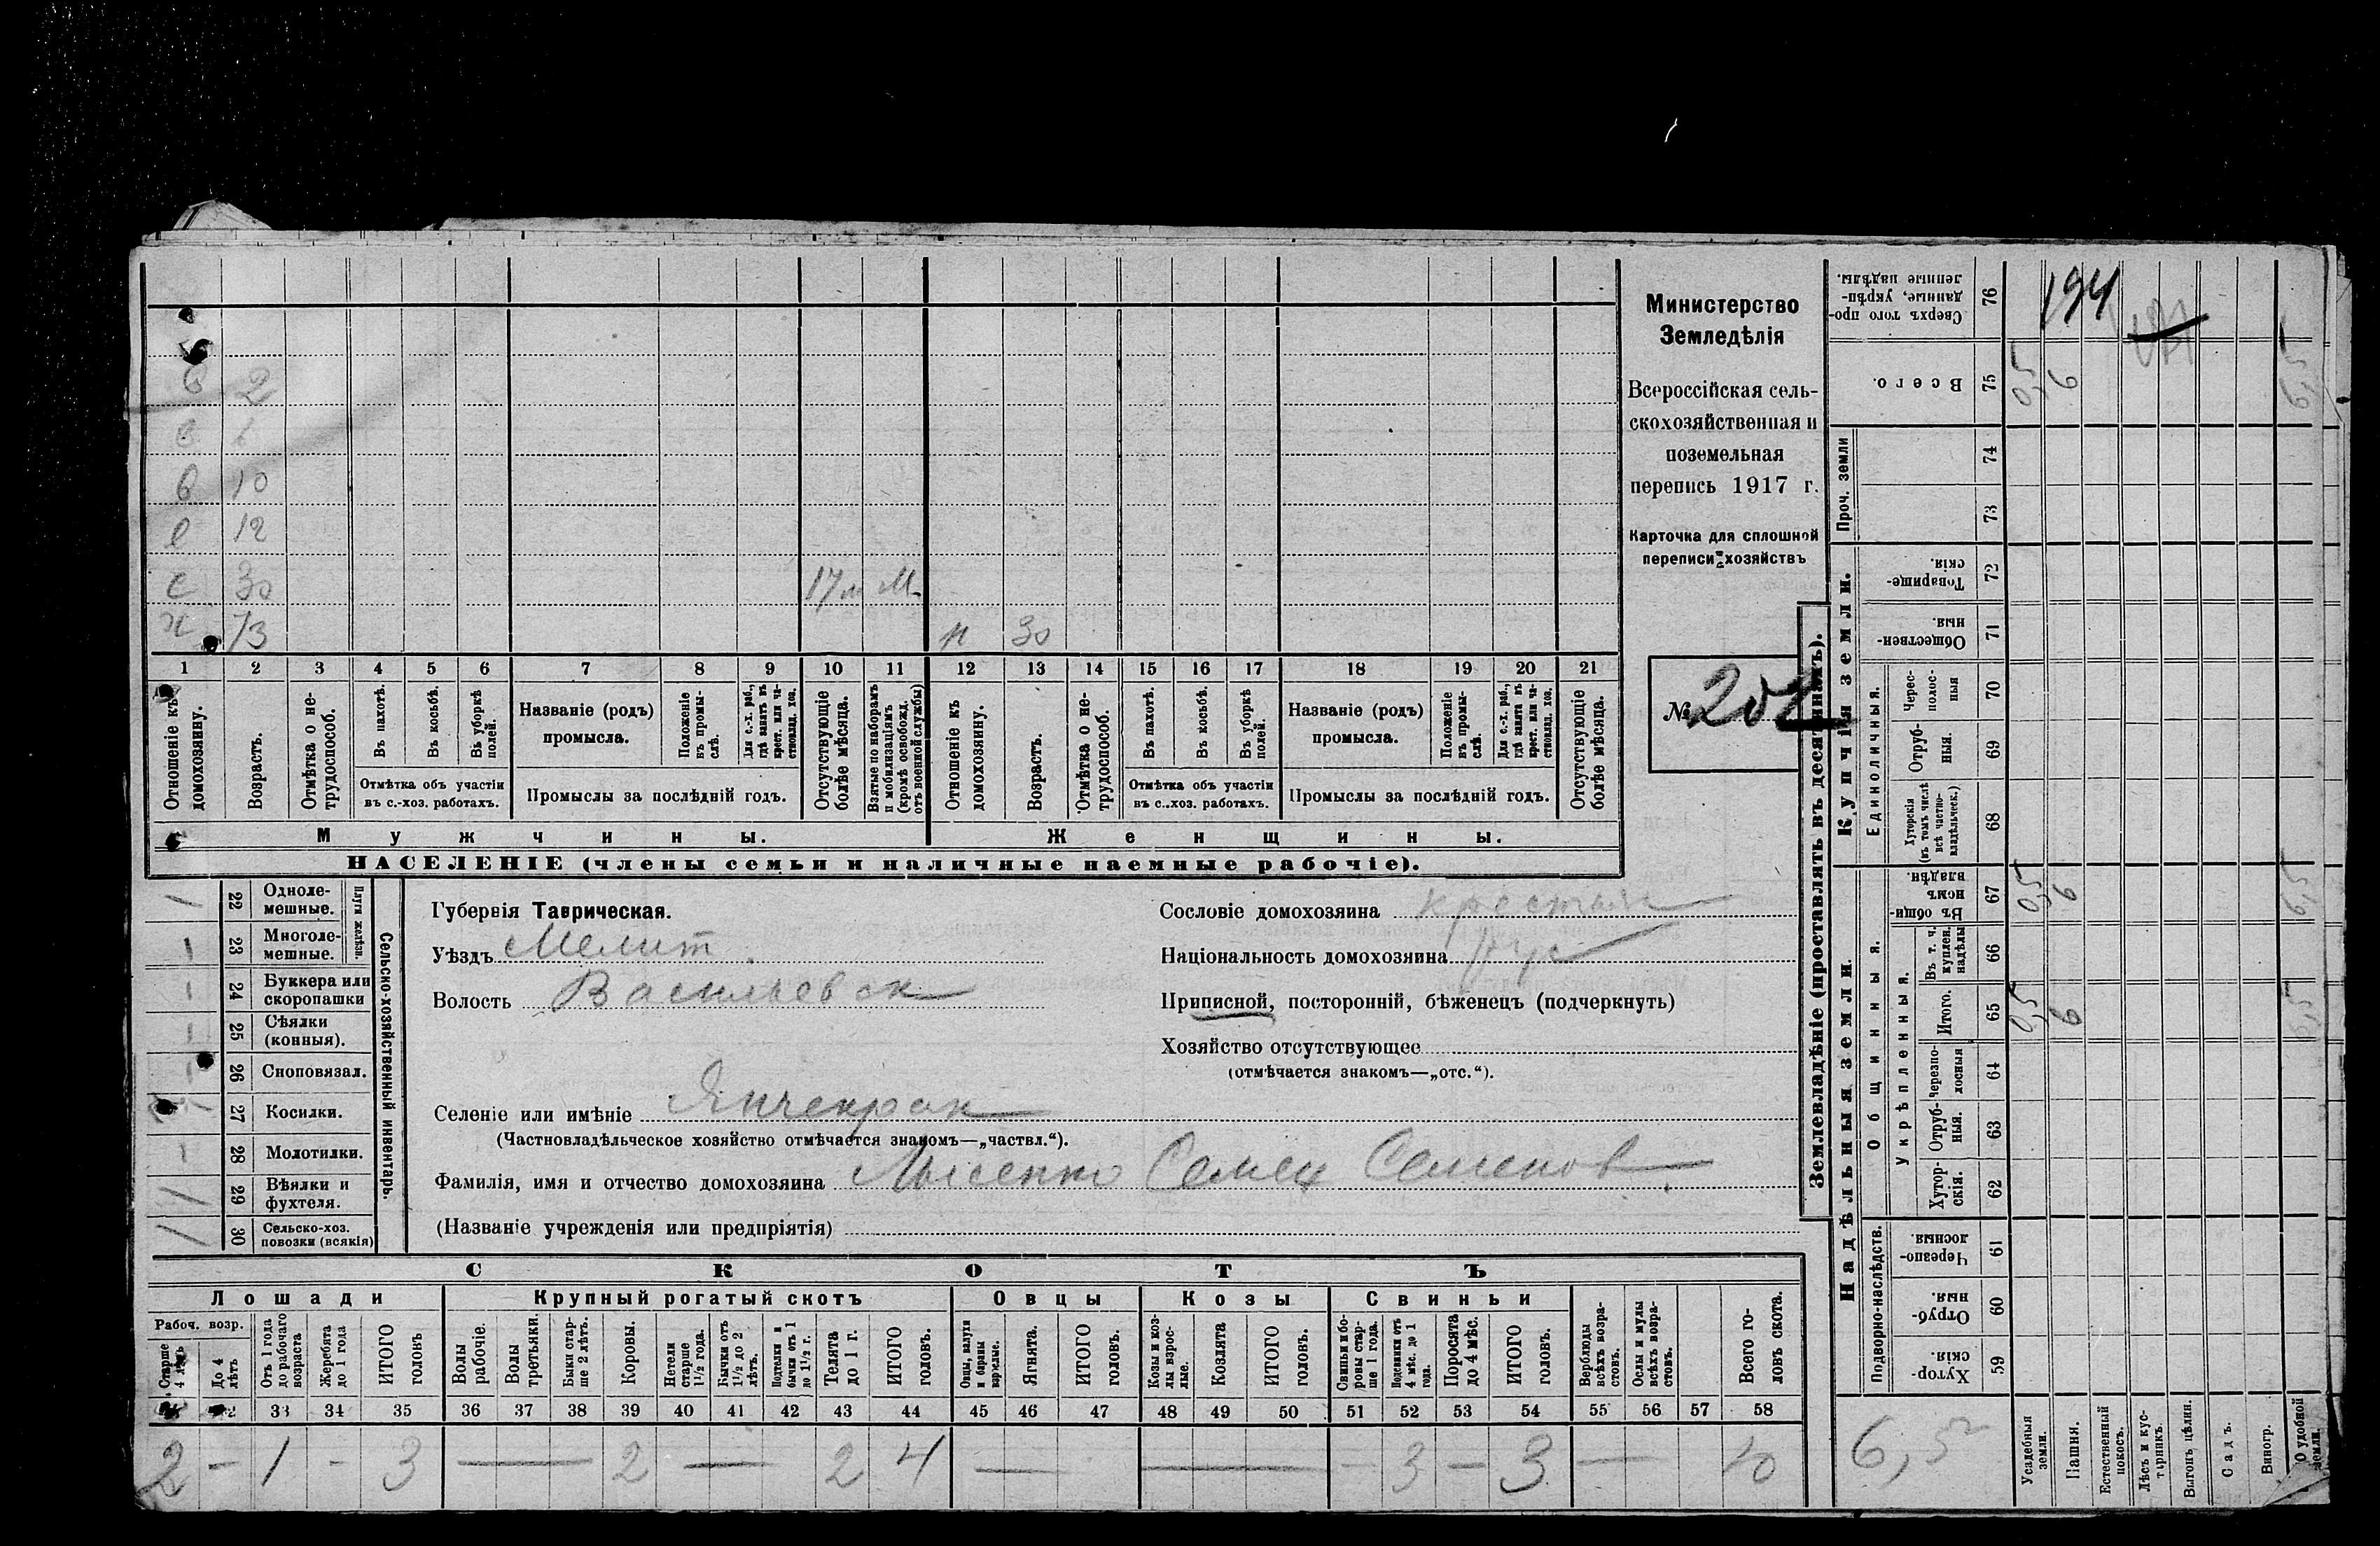 Министерство
Земледѣлія
Всероссійская сель-
скохозяйственная и
поземельная
перепись 1917 г.
Карточка для сплошной
переписи хозяйствъ
№ 202
в 2
в
в 10
е 12
с 30 17 м М.
х 73 н 30
1 2 3 4 5 6 7 8 9 10 11 12 13 14 15 16 17 18 19 20 21
Отношеніе къ домохозяину.
Возрастъ.
Отмѣтка о не-трудоспособ.
Въ пахотѣ.
Въ косьбѣ.
Въ уборкѣ полей.
Отмѣтка объ участіи
въ с.-хоз. работахъ.
Названіе (родъ)
промысла.
Положеніе въ промы-слѣ.
Для с.-х. раб., гдѣ занятъ въ крест. или ча-стновлад. хоз.
Промыслы за послѣдній годъ.
Отсутствующіе болѣе мѣсяца.
Взятые по наборамъ и мобилизаціямъ (кромѣ освобожд. отъ военной службы)
Отношеніе къ домохозяину.
Возрастъ.
Отмѣтка о не-трудоспособ.
Въ пахотѣ.
Въ косьбѣ.
Въ уборкѣ полей.
Отмѣтка объ участіи
въ с.-хоз. работахъ.
Названіе (родъ)
промысла.
Положеніе въ промы-слѣ.
Для с.-х. раб., гдѣ занята въ крест. или ча-стновлад. хоз.
Промыслы за послѣдній годъ.
Отсутствующіе болѣе мѣсяца.
Мужчины. Женщины.
НАСЕЛЕНІЕ (члены семьи и наличные наемные рабочіе).
Сельско-хозяйственный инвентарь.
Плуги желѣзн.
1 22 Одноле-мешные.
1 23 Многоле-мешные.
1 24 Буккера или скоропашки
1 25 Сѣялки (конныя).
1 26 Сноповязал.
27 Косилки.
1 28 Молотилки.
1 29 Вѣялки и фухтеля.
1 30 Сельско-хоз. повозки (всякія)
Губернія Таврическая.
Уѣздъ Мелит.
Волость Васильевск
Селеніе или имѣніе Янчекрак
(Частновладѣльческое хозяйство отмѣчается знакомъ—„частвл.“).
Фамилія, имя и отчество домохозяина Лысенко Семен Семенов
(Названіе учрежденія или предпріятія)
Сословіе домохозяина крестьян
Національность домохозяина Рус
Приписной, посторонній, бѣженецъ (подчеркнуть)
Хозяйство отсутствующее
(отмѣчается знакомъ—„отс.“).
СКОТЪ
Лошади Крупный рогатый скотъ Овцы Козы Свиньи
Рабоч. возр.
Старше 4 лѣтъ
До 4 лѣтъ
Отъ 1 года до рабочаго возраста
Жеребята до 1 года
ИТОГО головъ
Волы рабочіе.
Волы третьяки.
Быки стар-ше 2 лѣтъ.
Коровы.
Нетели старше 1½ года.
Бычки отъ 1½ до 2 лѣтъ.
Подтелки и бычки отъ 1 до 1½ г.
Телята до 1 г.
ИТОГО головъ.
Овцы, валухи и бараны взрослые.
Ягнята.
ИТОГО головъ.
Козы и коз-лы взрос-лые.
Козлята
ИТОГО головъ.
Свиньи и бо-ровы стар-ше 1 года.
Подсвинки отъ 4 мѣс. до 1 года.
Поросята до 4 мѣс.
ИТОГО головъ.
Верблюды всѣхъ возра-стовъ.
Ослы и мулы всѣхъ возра-стовъ.
Всего го-ловъ скота.
33 34 35 36 37 38 39 40 41 42 43 44 45 46 47 48 49 50 51 52 53 54 55 56 57 58
2 – 1 – 3 — 2 — 2 4 — — – 3 – 3 — 10
Землевладѣніе (проставлять въ десятинахъ).
Надѣльныя земли.
Купчія земли.
Проч. земли
Подворно-наслѣдств.
Общинныя.
Укрѣпленныя.
Единоличныя.
Сверхъ того про-данные, укрѣп-ленные надѣлы. 76 194
Всего. 75 0,5 6 6,5
74
73
Товарище-скія. 72
Обществен-ныя. 71
Черес-полос-ныя 70
Отруб-ныя. 69
Хуторскія (въ томъ числѣ всѣ частно-владѣльческ.) 68
Въ общи-номъ владѣн. 67 0,5 6 6,5
Въ т. ч. куплен. надѣлы 66
Итого. 65 0,5 6 6,5
Черезпо-лосныя 64
Отруб-ныя. 63
Хутор-скія. 62
Черезпо-лосныя 61
Отруб-ныя. 60
Хутор-скія. 59
6,5
Усадебныя земли.
Пашня.
Естественный покосъ.
Лѣсъ и кус-тарникъ.
Выгонъ цѣлин.
Садъ.
Виногр.
О удобной земли.